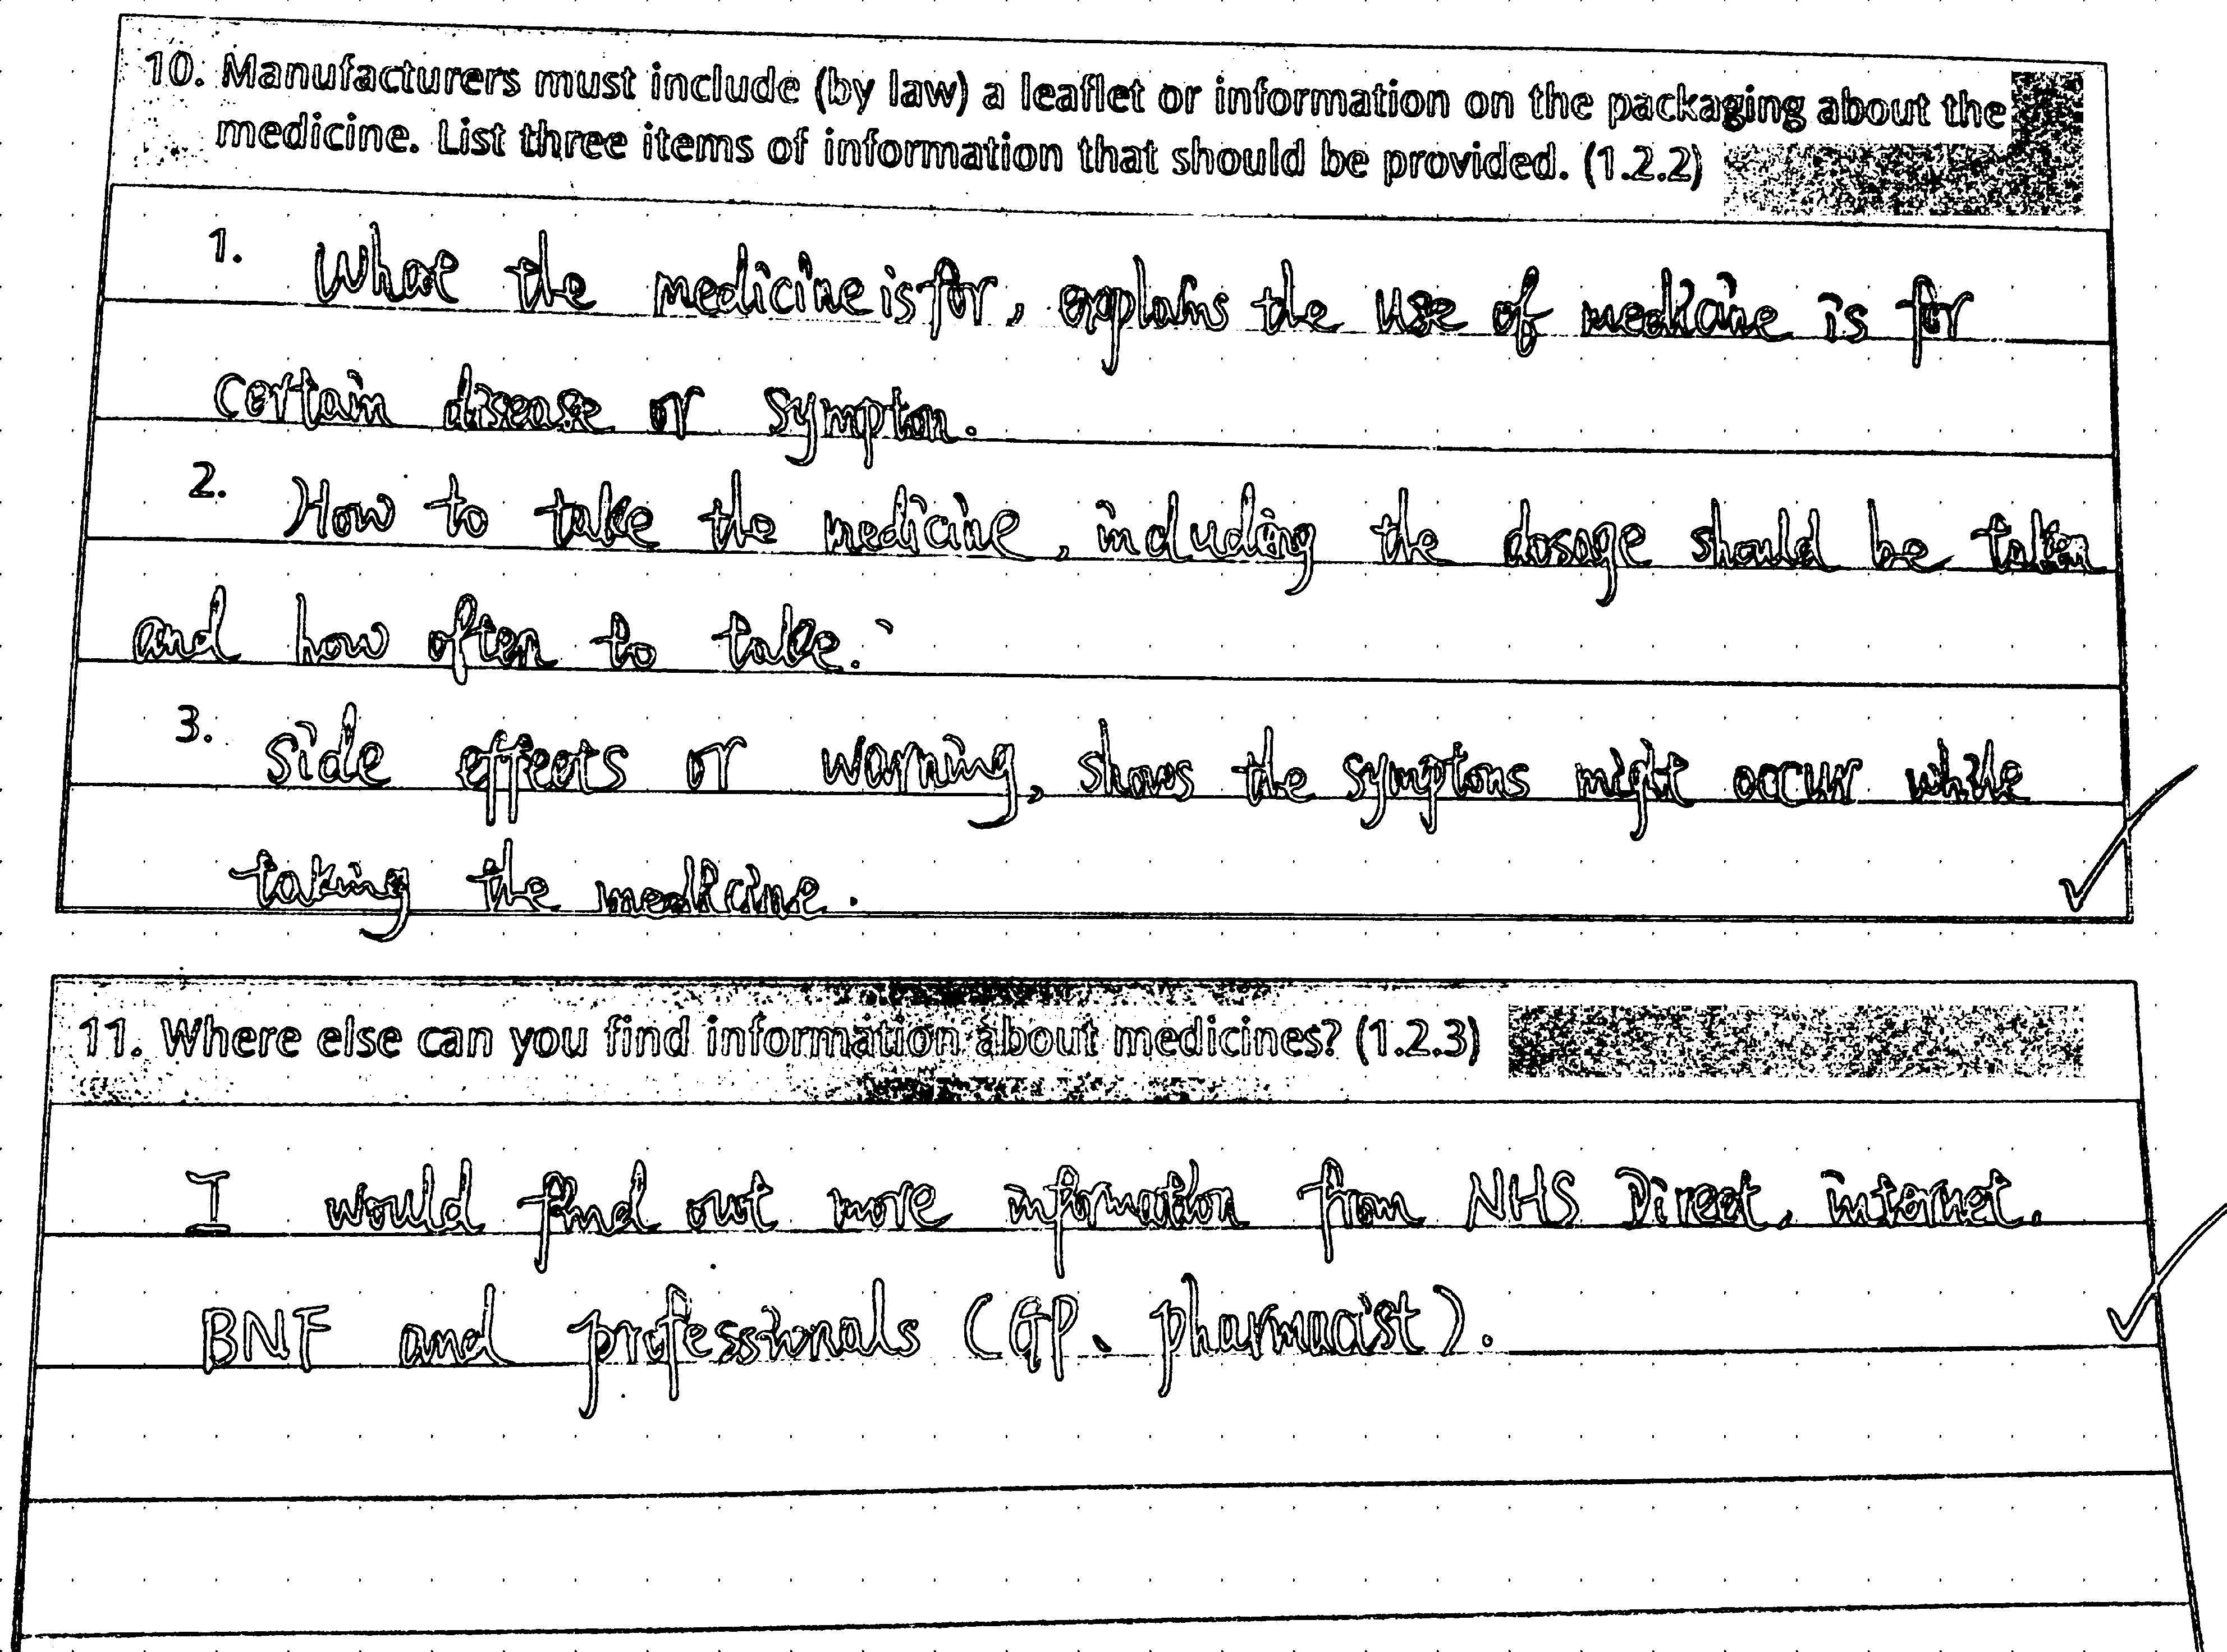 10. Manufacturers must include (by law) a leaflet or information on the packaging about the
medicine. List three items of information that should be provided. (1.2.2)
1. What the medicine is for, explains the use of medicine is for
certain disease or sympton.
2. How to take the medicine, including the dosage should be taken
and how often to take.
3. side effects or warning, shows the symptons might occur while
taking the medicine.
11. Where else can you find information about medicines? (1.2.3)
I would find out more information from NHS Direct, internet,
BNF and professionals (GP、pharmacist).